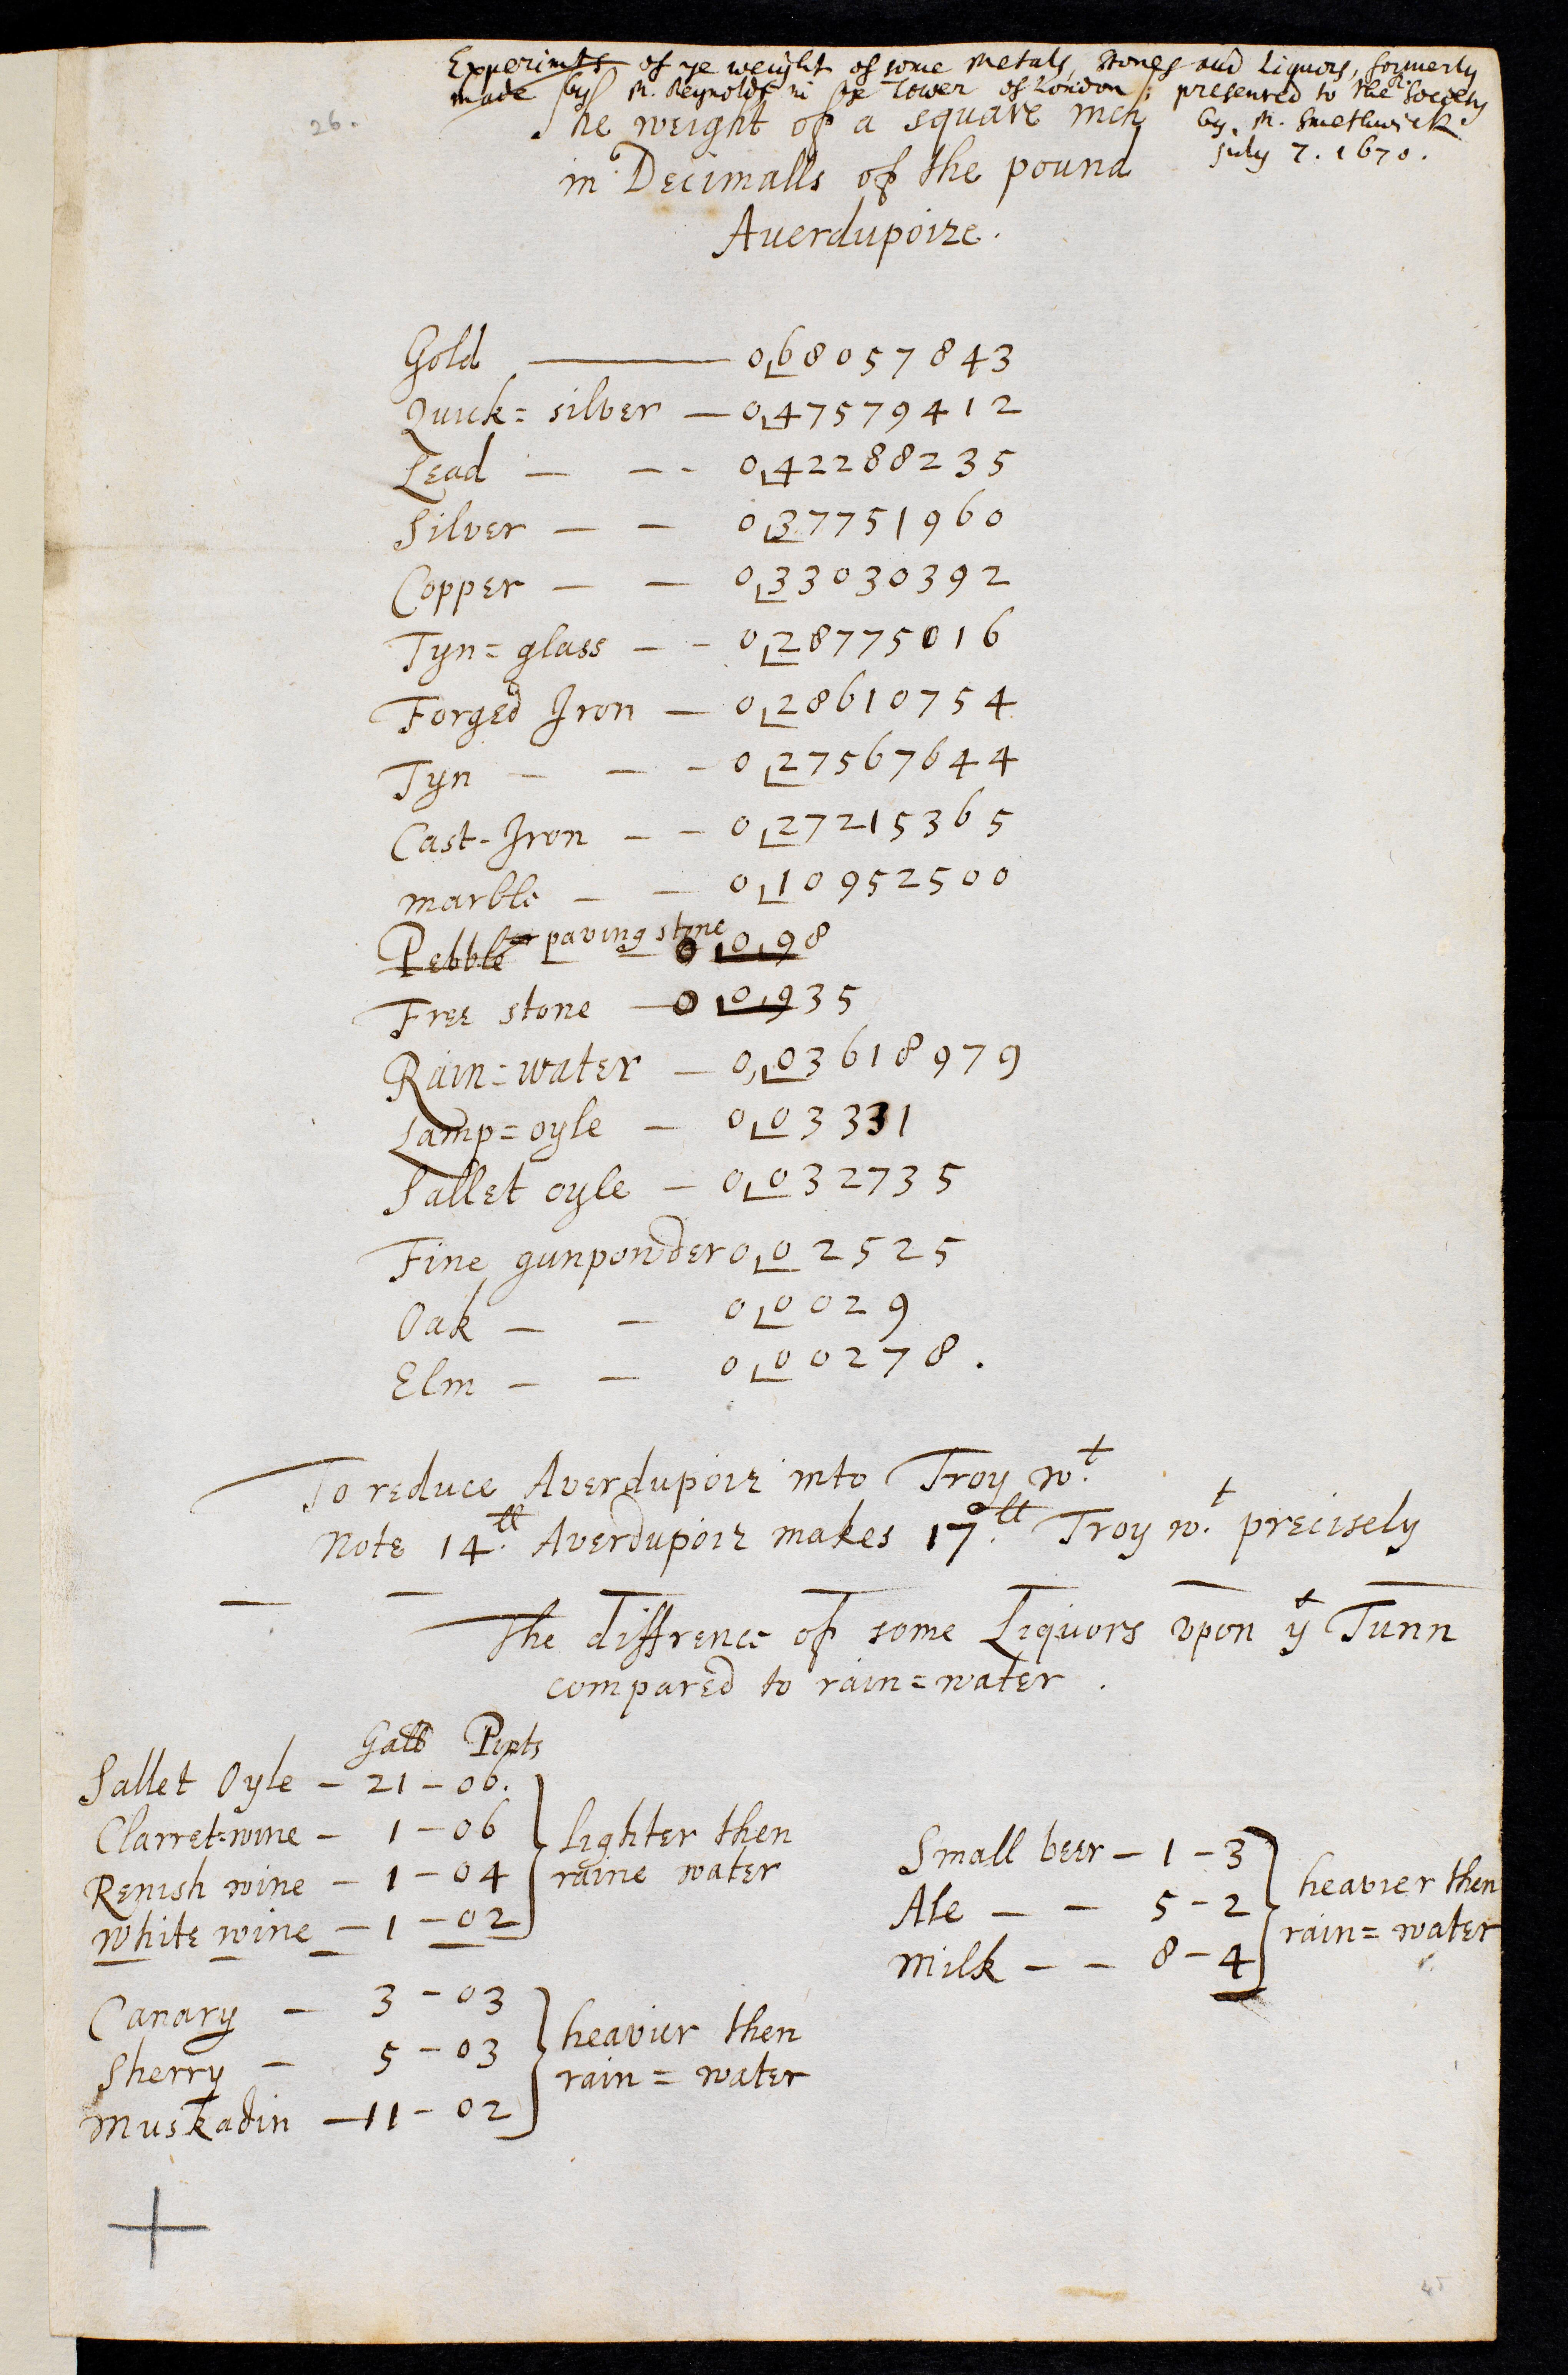 Experimts of ye weight of some Metals, Stones and Liquors, formerly
made by M. Reynolds in ye Tower of London; presented to the R. Society
by M. Smethwick
July 7. 1670.
26.
The weight of a square inch
in Decimalls of the pound
Auerdupoize.
Gold — 0,68057843
Quick=silver — 0,47579412
Lead — -- 0,42288235
Silver — — 0,37751960
Copper — — 0,33030392
Tyn=glass — - 0,28775016
Forged Iron — 0,28610754
Tyn — — - 0,27567644
Cast-Iron — - 0,27215365
marble — — 0,10952500
Pebble or paving stone 0,0,98
Free stone — 0,0,935
Rain=water — 0,03618979
Lamp=oyle — 0,03331
Sallet oyle — 0,032735
Fine gunpowder 0,02525
Oak — — 0,0029
Elm — — 0,00278.
To reduce Averdupoiz into Troy wt.
Note 14ll. Averdupoiz makes 17ll. Troy wt. precisely
The diffrence of some Liquors vpon yt Tunn
compared to rain=water.
Gall Pints
Sallet Oyle — 21 — 06.
Clarret=wine — 1 — 06
Renish wine — 1 — 04
White wine — 1 — 02
lighter then
raine water
Canary — 3 — 03
Sherry — 5 — 03
Muskadin — 11 — 02
heavier then
rain=water
Small beer — 1 — 3
Ale — — 5 — 2
Milk — — 8 — 4
heavier then
rain=water
45